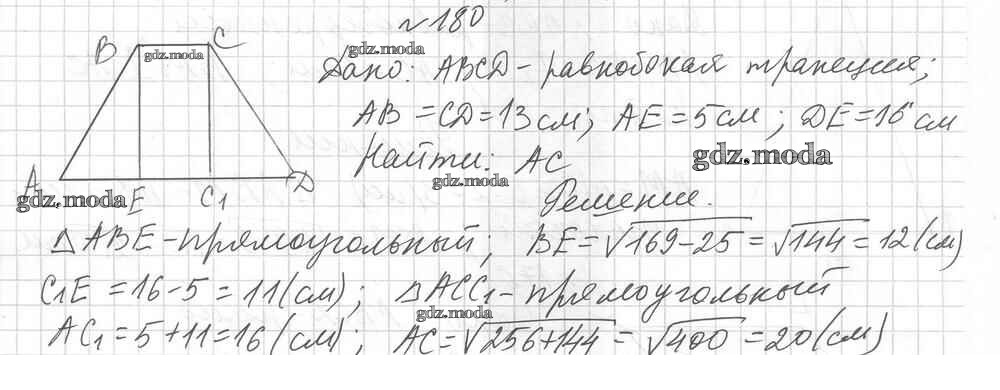 №180
B C
gdz.moda
gdz.moda
Дано: ABCD - равнобокая трапеция;
AB = CD = 13 см; AE = 5 см; DE = 16 см
Найти: AC
gdz.moda
gdz.moda
A E C₁ D
gdz.moda
Решение.
△ABE - прямоугольный; BE = √169-25 = √144 = 12 (см)
C₁E = 16-5 = 11 (см); △ACC₁ - прямоугольный
gdz.moda
AC₁ = 5+11 = 16 (см); AC = √256+144 = √400 = 20 (см)